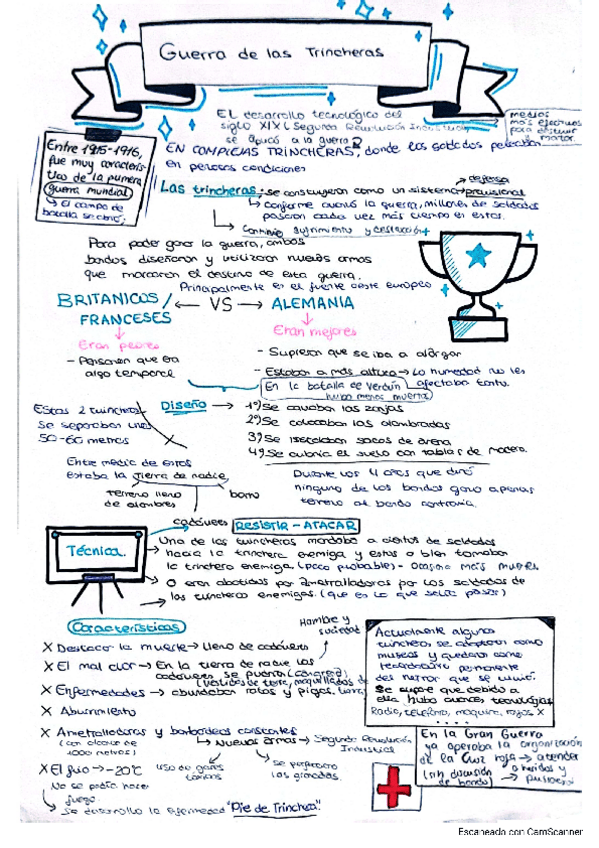 Guerra de las Trincheras
EL desarrollo tecnológico del
siglo XIX (Segunda Revolución Industrial)
se aplicó a la guerra
medios
más efectivos
para destruir
y matar
Entre 1915-1916,
fue muy caracterís-
tico de la primera
guerra mundial
↳ El campo de
batalla se cavó;
EN COMPLEJAS TRINCHERAS, donde los soldados perecían
en penosas condiciones
defensa
Las trincheras: se construyeron como un sistema provisional
↳ Conforme avanzó la guerra, millones de soldados
pasaron cada vez más tiempo en estas.
↳ Continuo sufrimiento y destrucción
Para poder ganar la guerra, ambos
bandos diseñaron y utilizaron nuevas armas
que marcaron el destino de esta guerra.
Principalmente es el frente oeste europeo
BRITANICOS/
FRANCESES
← VS → ALEMANIA
Eran peores
Eran mejores
- Pensaron que era
algo temporal
- Supieron que se iba a alargar
- Estaban a más altura → La humedad no les
afectaba tanto.
En la batalla de Verdún
hubo menos muertes
Estas 2 trincheras
se separaban unos
50-60 metros
Diseño → 1º) Se cavaban las zanjas
2º) Se colocaban las alambradas
3º) Se instalaban sacos de arena
4º) Se cubría el suelo con tablas de madera.
Entre medio de estas
estaba la tierra de nadie
terreno lleno
de alambres
barro
Durante los 4 años que duró
ninguno de los bandos ganó apenas
terreno al bando contrario.
cadáveres
RESISTIR - ATACAR
Técnica.
Una de las trincheras mandaba a cientos de soldados
hacia la trinchera enemiga y estos o bien tomaban
la trinchera enemiga, (poco probable) - Ocasiona más muertes
O eran abatidos por ametralladoras por los soldados de
las trincheras enemigas. (que es lo que solía pasar)
Características
Hombre y
suciedad
X Destaco la muerte → lleno de cadáveres
X El mal olor → En la tierra de nadie los
cadáveres se pudrían (cangrena)
X Enfermedades → abundaban ratas y piojos,
X Aburrimiento
X Ametralladoras y bombardeos constantes
(con alcance de
1000 metros)
↳ Nuevas armas → Segunda Revolución
Industrial
uso de gases
tóxicos
se perfecciono
las granadas.
X El frio → -20ºC
No se podía hacer
fuego.
↳ Se desarrollo la enfermedad "Pie de Trinchera"
Actualmente algunas
trincheras se adaptaron como
museos y quedaron como
recordatorio permanente
del horror que se vivió.
Se supo que debido a
ella hubo avances tecnológicos
Radio, teléfono, maquina, rayos X
. . . . .
En la Gran Guerra
ya operaba la organización
de la Cruz roja → atender
a heridos y
(sin discusión
de bando)
Escaneado con CamScanner